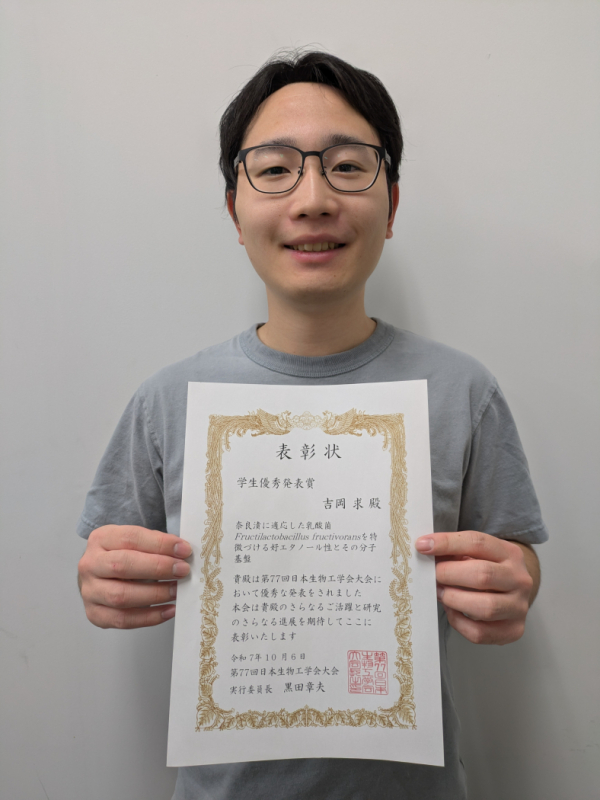 表彰状
学生優秀発表賞
吉岡 求 殿
奈良漬に適応した乳酸菌
Fructilactobacillus fructivoransを特
徴づける好エタノール性とその分子
基盤
貴殿は第77回日本生物工学会大会に
おいて優秀な発表をされました
本会は貴殿のさらなるご活躍と研究
のさらなる進展を期待してここに
表彰いたします
令和7年10月6日
第77回日本生物工学会大会
実行委員長 黒田章夫